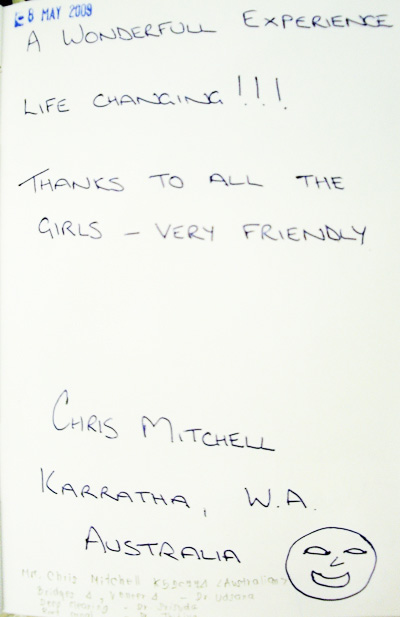 8 MAY 2009
A WONDERFULL EXPERIENCE
LIFE CHANGING!!!
THANKS TO ALL THE
GIRLS - VERY FRIENDLY
CHRIS MITCHELL
KARRATHA, W.A.
AUSTRALIA
Mr. Chris Mitchell (Australian)
Bridges 4, Veneer - Dr
Deep Cleaning - Dr